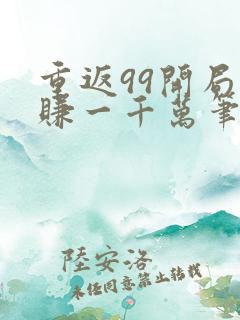 重返99開局
賺一千萬筆
陸安洛
未经同意禁止转载